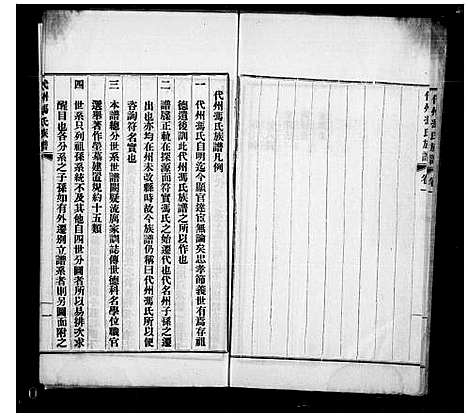 代州馮氏族譜 卷一
代州馮氏族譜凡例
一 代州馮氏自明迄今顯官達宦無論矣忠孝節義世有焉存祖
德遺後訓此代州馮氏族譜之所以作也
二 譜牒正軌在探源面符實馮氏之始遷代也代名州子孫之遷
出也亦均在州未改縣時故今族譜仍稱曰代州馮氏所以便
咨詢符名實也
三 本譜總分世系世譜闕疑流寓家訓誌傳世德科名學位職官
選舉著作塋墓建置規約十五類
四 世系只列祖系統不及其他自四世分圖者所以易排次求
醒目也各分系之子孫如有外遷別立譜系者則另圖面附之
代州馮氏族譜
一